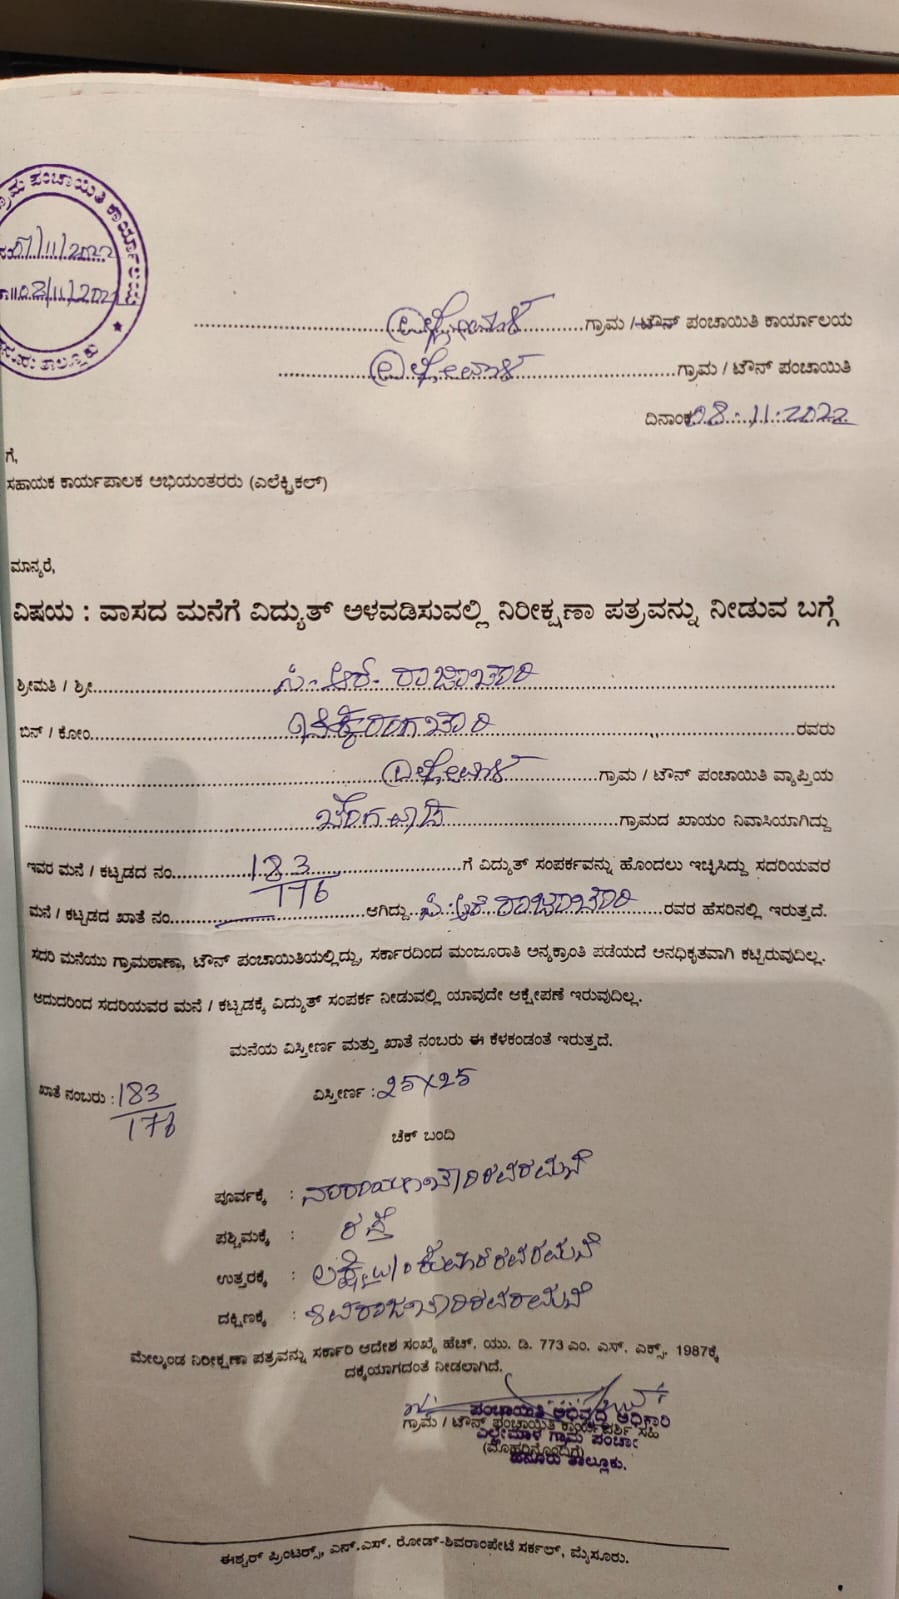 ಗ್ರಾಮ ಪಂಚಾಯಿತಿ ಕಾರ್ಯಾಲಯ
07/11/2022
08/11/202
ತಾಲ್ಲೂಕು
ಗ್ರಾಮ / ಟೌನ್ ಪಂಚಾಯಿತಿ ಕಾರ್ಯಾಲಯ
ಗ್ರಾಮ / ಟೌನ್ ಪಂಚಾಯಿತಿ
ದಿನಾಂಕ 08.11.2022
ಗೆ,
ಸಹಾಯಕ ಕಾರ್ಯಪಾಲಕ ಅಭಿಯಂತರರು (ಎಲೆಕ್ಟ್ರಿಕಲ್)
ಮಾನ್ಯರೆ,
ವಿಷಯ : ವಾಸದ ಮನೆಗೆ ವಿದ್ಯುತ್ ಅಳವಡಿಸುವಲ್ಲಿ ನಿರೀಕ್ಷಣಾ ಪತ್ರವನ್ನು ನೀಡುವ ಬಗ್ಗೆ
ಶ್ರೀಮತಿ / ಶ್ರೀ ಸಿ. ಆರ್. ರಾಜಾಚಾರಿ
ಬಿನ್ / ಕೋಂ ಚಿಕ್ಕರಂಗಚಾರಿ ರವರು
ಗ್ರಾಮ / ಟೌನ್ ಪಂಚಾಯಿತಿ ವ್ಯಾಪ್ತಿಯ
ಗ್ರಾಮದ ಖಾಯಂ ನಿವಾಸಿಯಾಗಿದ್ದು
ಇವರ ಮನೆ / ಕಟ್ಟಡದ ನಂ. 183/176 ಗೆ ವಿದ್ಯುತ್ ಸಂಪರ್ಕವನ್ನು ಹೊಂದಲು ಇಚ್ಛಿಸಿದ್ದು ಸದರಿಯವರ
ಮನೆ / ಕಟ್ಟಡದ ಖಾತೆ ನಂ. ಆಗಿದ್ದು ಸಿ. ಆರ್ ರಾಜಾಚಾರಿ ರವರ ಹೆಸರಿನಲ್ಲಿ ಇರುತ್ತದೆ.
ಸದರಿ ಮನೆಯು ಗ್ರಾಮಠಾಣಾ, ಟೌನ್ ಪಂಚಾಯಿತಿಯಲ್ಲಿದ್ದು, ಸರ್ಕಾರದಿಂದ ಮಂಜೂರಾತಿ ಅನ್ಯಕ್ರಾಂತಿ ಪಡೆಯದೆ ಅನಧಿಕೃತವಾಗಿ ಕಟ್ಟಿರುವುದಿಲ್ಲ.
ಆದುದರಿಂದ ಸದರಿಯವರ ಮನೆ / ಕಟ್ಟಡಕ್ಕೆ ವಿದ್ಯುತ್ ಸಂಪರ್ಕ ನೀಡುವಲ್ಲಿ ಯಾವುದೇ ಆಕ್ಷೇಪಣೆ ಇರುವುದಿಲ್ಲ.
ಮನೆಯ ವಿಸ್ತೀರ್ಣ ಮತ್ತು ಖಾತೆ ನಂಬರು ಈ ಕೆಳಕಂಡಂತೆ ಇರುತ್ತದೆ.
ಖಾತೆ ನಂಬರು : 183/176 ವಿಸ್ತೀರ್ಣ : 25x25
ಚೆಕ್ ಬಂದಿ
ಪೂರ್ವಕ್ಕೆ : ನಾರಾಯಣಚಾರಿರವರಮನೆ
ಪಶ್ಚಿಮಕ್ಕೆ : ರಸ್ತೆ
ಉತ್ತರಕ್ಕೆ :
ದಕ್ಷಿಣಕ್ಕೆ : ಶಿವರಾಜಚಾರಿರವರಮನೆ
ಮೇಲ್ಕಂಡ ನಿರೀಕ್ಷಣಾ ಪತ್ರವನ್ನು ಸರ್ಕಾರಿ ಆದೇಶ ಸಂಖ್ಯೆ ಹೆಚ್. ಯು. ಡಿ. 773 ಎಂ. ಎಸ್. ಎಕ್ಸ್. 1987ಕ್ಕೆ
ದಕ್ಕೆಯಾಗದಂತೆ ನೀಡಲಾಗಿದೆ.
ಪಂಚಾಯಿತಿ ಅಭಿವೃದ್ಧಿ ಅಧಿಕಾರಿ
ಗ್ರಾಮ / ಟೌನ್ ಪಂಚಾಯಿತಿ ಕಾರ್ಯದರ್ಶಿ ಸಹಿ
ಎಲ್ಲೇಮಾಳ ಗ್ರಾಮ ಪಂಚಾ
(ಮೊಹರಿನೊಂದಿಗೆ)
ಹನೂರು ತಾಲ್ಲೂಕು.
ಈಶ್ವರ್ ಪ್ರಿಂಟರ್ಸ್, ಎನ್.ಎಸ್. ರೋಡ್-ಶಿವರಾಂಪೇಟೆ ಸರ್ಕಲ್, ಮೈಸೂರು.